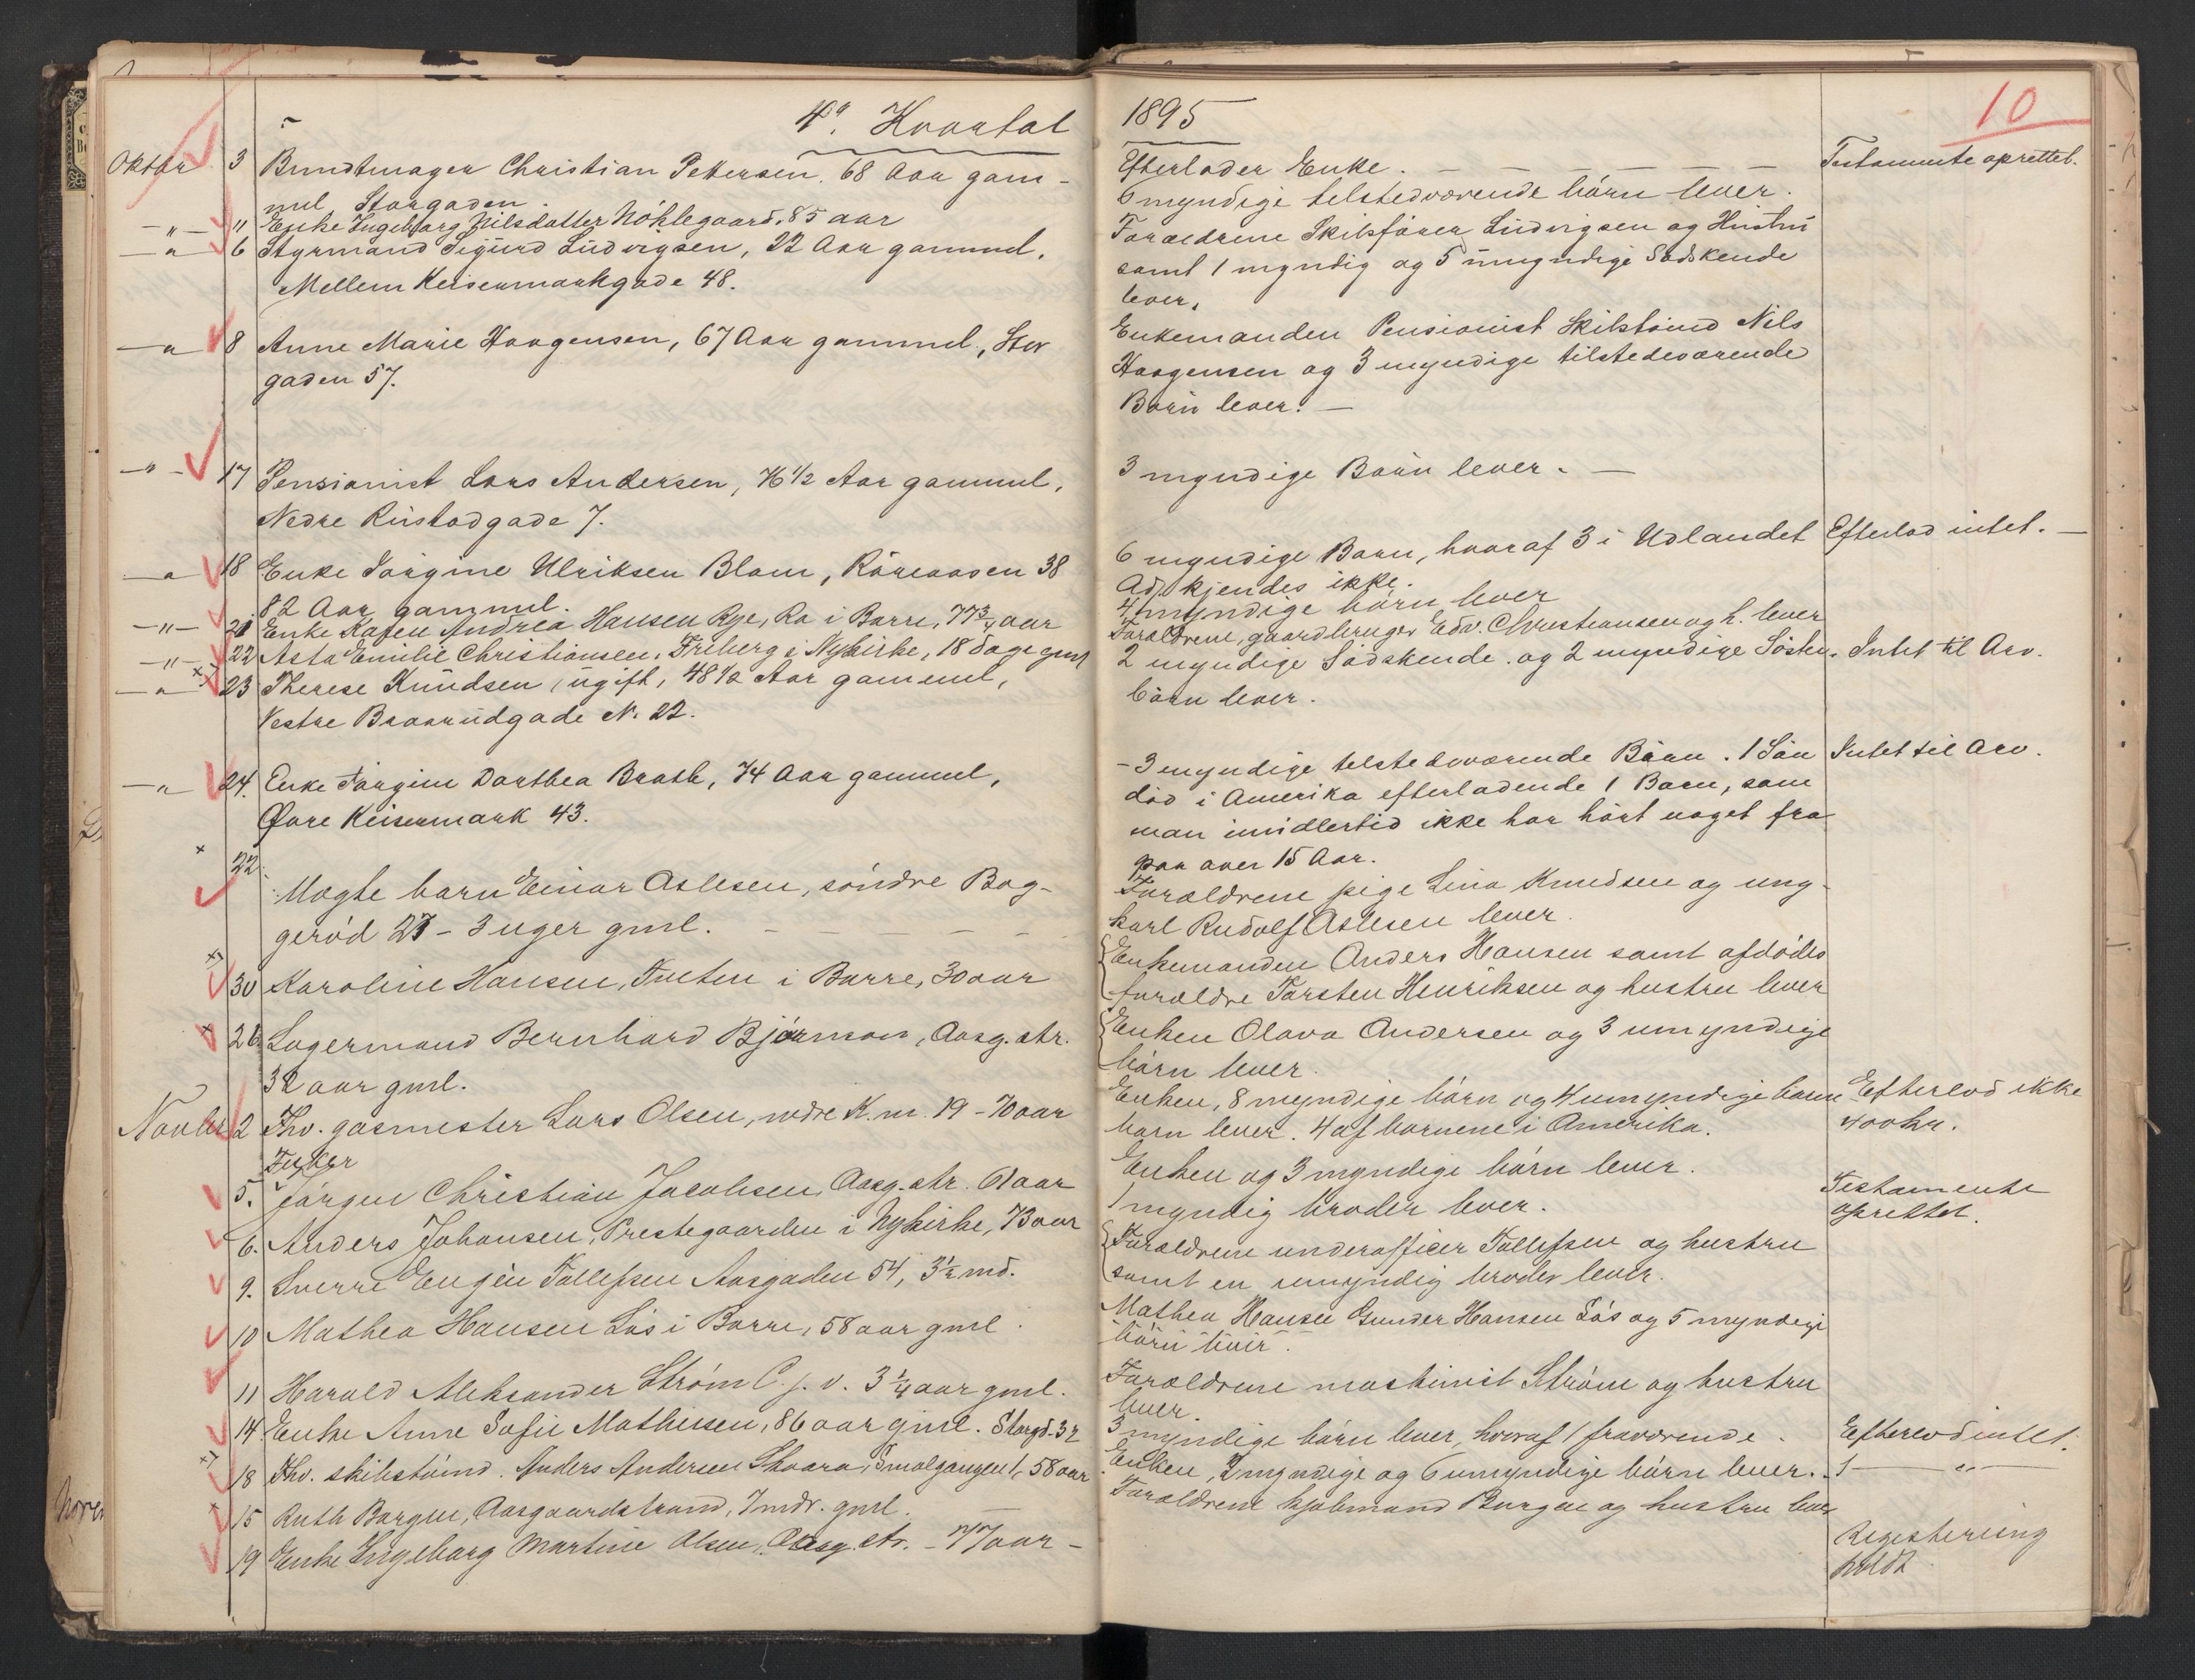 4de Kvartal
Oktbr 3 Bundtmager Christian Pettersen. 68 Aar gam-
mel, Storgaden.
— " — " Enke Ingeborg Nilsdatter Nöklegaard. 85 aar
— " — 6 Styrmand Sigurd Ludvigsen, 22 Aar gammel.
Mellem Keisermarkgade 48.
— " — 8 Anne Marie Haagensen, 67 Aar gammel, Stor
gaden 57.
— " — 17 Pensionist Lars Andersen, 76 1/2 Aar gammel,
Nedre Rustadgade 7.
— " — 18 Enke Jörgine Ulriksen Blom, Röreaasen 38
82 Aar gammel.
— " — 21 Enke Karen Andrea Hansen Rye, Ra i Borre, 77 3/4 aar
— " — 22 Asta Emilie Christiansen, Friberg i Nykirke, 18 dage gml
— " — 23 Therese Knudsen, ugift, 48 1/2 Aar gammel,
Vestre Braarudgade N. 22.
— " — 24. Enke Jörgine Dorthea Brath, 74 Aar gammel,
Øvre Keisermark 43.
22 Uægte barn Einar Aslesen, söndre Bag-
geröd 27 - 3 uger gml. — — — — —
30 Karoline Hansen, Tveten i Borre, 30 aar
26 Lagermand Bernhard Björnson, Aasg. str.
32 aar gml.
Novbr 2 Fhv. gasmester Lars Olsen, nedre K. m. 19 - 70 aar
Fisker
5. Jörgen Christian Jacobsen, Aasg. str. 61 aar
6. Anders Johansen, Prestegaarden i Nykirke, 73 aar
9. Sverre Eugèn Tollefsen Aasgaden 54, 3 1/2 md.
10 Mathea Hansen Lös i Borre, 58 aar gml.
11 Harald Aleksander Ström C. j. v. 3 1/4 aar gml.
14. Enke Anne Sofie Mathisen, 86 aar gml. Storgd. 32
18 Fhv. skibstömd. Anders Andersen Skaara, Smalgangen 1, 58 aar
15 Ruth Borgen, Aasgaardstrand, 7 mdr. gml. —
19 Enke Ingeborg Martine Olsen, Aasg. str. - 77 aar -
1895
10
Efterlader Enke. — — — — — — Testamente oprettet.
6 myndige tilstedeværende börn lever.
Forældrene Skibsförer Ludvigsen og Hustru
samt 1 myndig og 5 umyndige Södskende
lever.
Enkemanden Pensionist Skibstömd Nils
Haagensen og 3 myndige tilstedeværende
Börn lever. —
3 myndige Börn lever. —
6 myndige Börn, hvoraf 3 i Udlandet Efterlod intet. —
Adr. kjendes ikke.
4 myndige börn lever
Forældrene, gaardbruger Edv. Christiansen og h. lever
2 myndige Södskende og 2 myndige Sösken- Intet til Arv.
börn lever.
- 3 myndige tilstedeværende Börn. 1 Sön Intet til Arv.
död i Amerika efterladende 1 Barn, som
man imidlertid ikke har hört noget fra
paa over 15 Aar.
Forældrene pige Lina Knudsen og ung-
karl Rudolf Aslesen lever.
Enkemanden Anders Hansen samt afdödes
forældre Torsten Henriksen og hustru lever
Enken Olava Andersen og 3 umyndige
börn lever.
Enken, 8 myndige börn og 4 umyndige börne Efterlod ikke
barn lever. 4 af barnene i Amerika. 400 kr.
Enken og 3 myndige börn lever.
1 myndig broder lever. Testamente
oprettet.
Forældrene underofficer Tollefsen og hustru
samt en umyndig broder lever.
Mathea Hansen Gunder Hansen Lös og 5 myndige
börn lever.
Forældrene maskinist Ström og hustru
lever.
3 myndige börn lever, hvoraf 1 fraværende. Efterlod intet.
Enken, 2 myndige og 6 umyndige börn lever. — " —
Forældrene kjöbmand Borgen og hustru lever
Registrering
holdt.